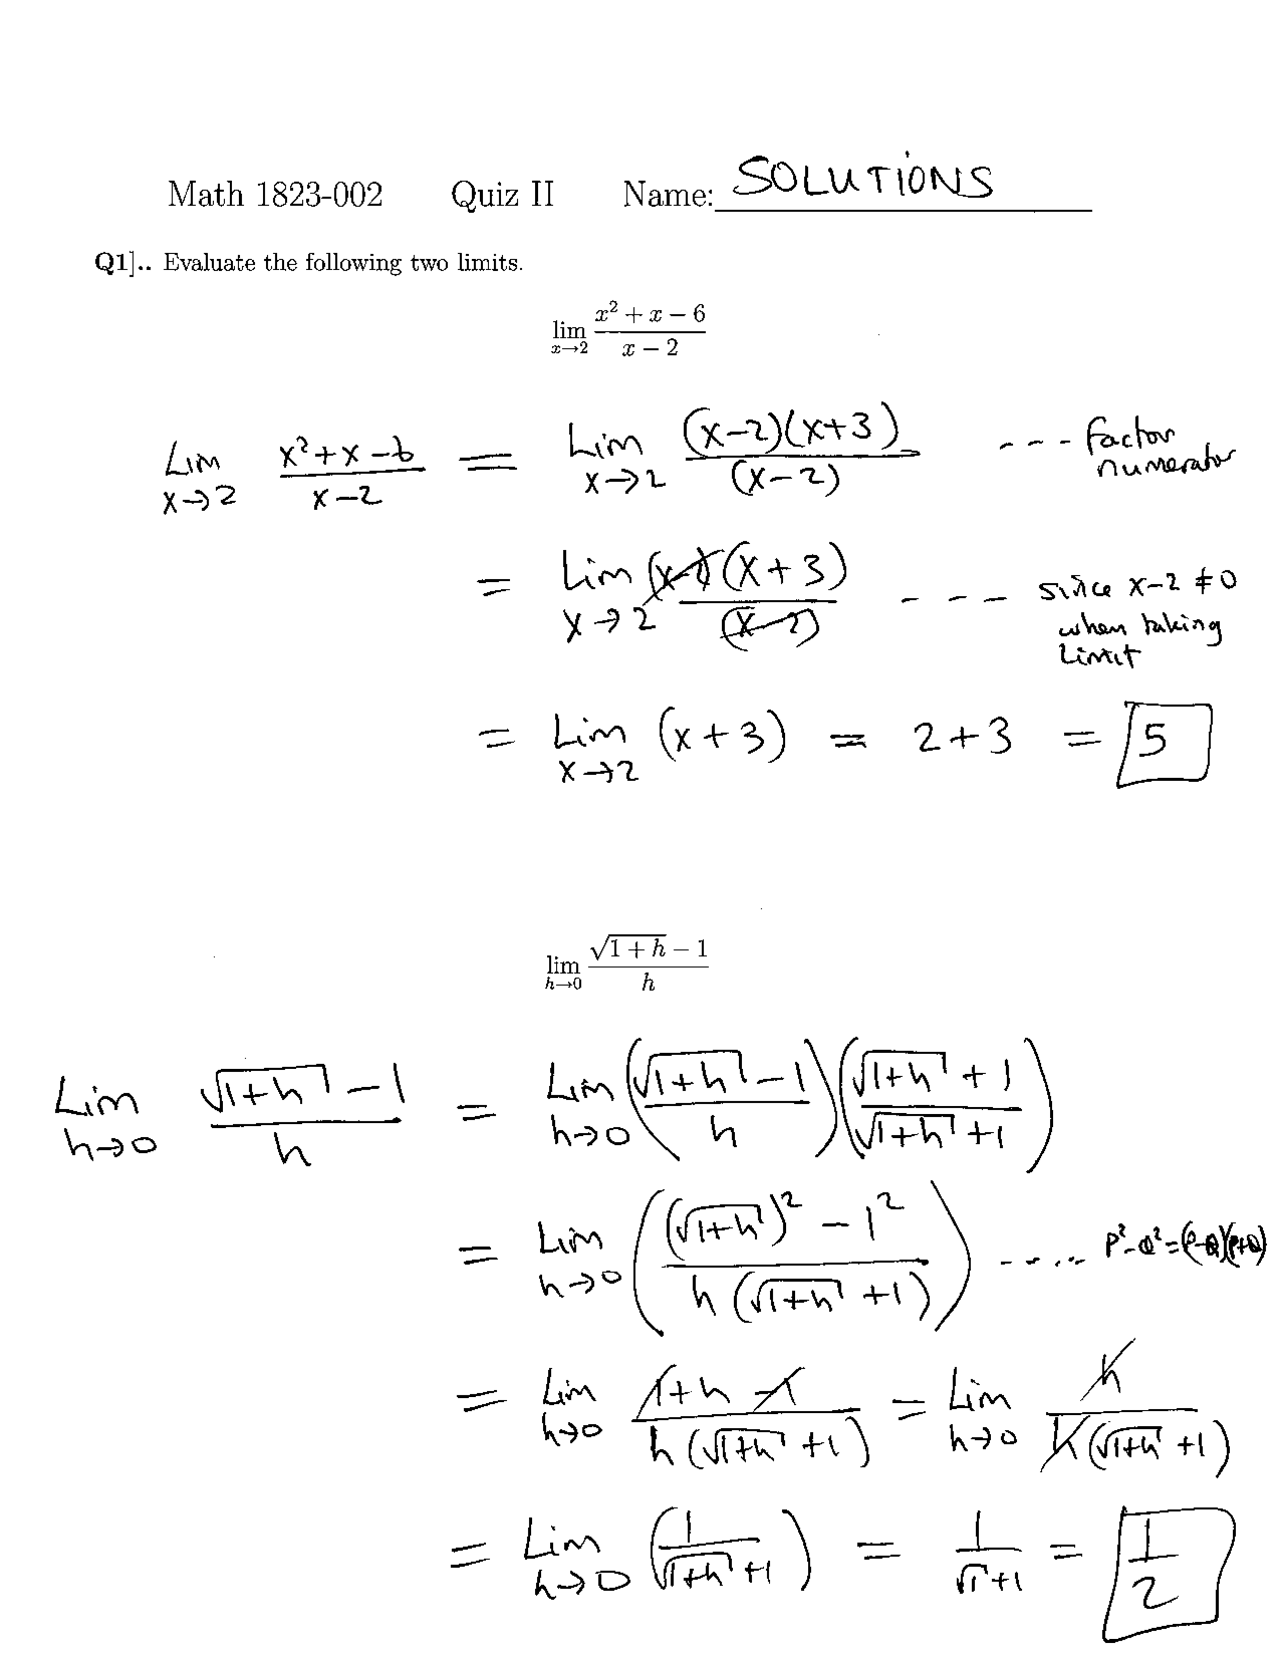 Math 1823-002 Quiz II Name: SOLUTIONS
Q1].. Evaluate the following two limits.
lim_{x→2} (x² + x − 6)/(x − 2)
Lim_{x→2} (x²+x−6)/(x−2) = Lim_{x→2} ((x−2)(x+3))/(x−2) --- factor numerator
= Lim_{x→2} ((x−2)(x+3))/(x−2) --- since x−2 ≠ 0 when taking limit
= Lim_{x→2} (x+3) = 2+3 = 5
lim_{h→0} (√(1+h) − 1)/h
Lim_{h→0} (√(1+h) − 1)/h = Lim_{h→0} ((√(1+h) − 1)/h)((√(1+h) + 1)/(√(1+h) + 1))
= Lim_{h→0} (((√(1+h))² − 1²)/(h(√(1+h) + 1))) ..... P²−Q²=(P−Q)(P+Q)
= Lim_{h→0} (1+h−1)/(h(√(1+h) + 1)) = Lim_{h→0} h/(h(√(1+h) + 1))
= Lim_{h→0} (1/(√(1+h) + 1)) = 1/(√1 + 1) = 1/2